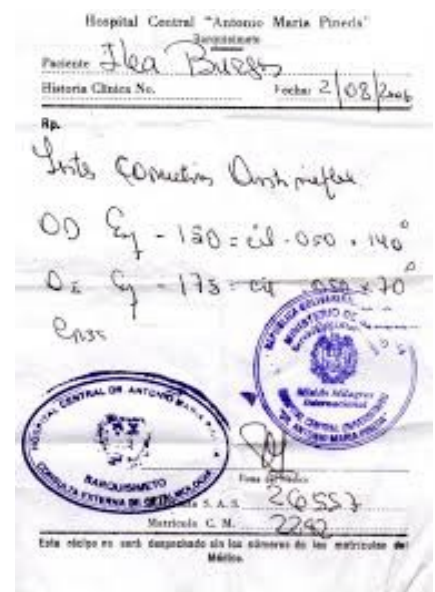 Hospital Central "Antonio Maria Pineda"
Barquisimeto
Paciente Ilea Burgos
Historia Clinica No. Fecha: 2/08/2006
Rp.
Lentes Correctivos Antireflex
OD Esf - 150 = cil - 050 x 140°
OI Esf - 175 = cil - 050 x 70°
HOSPITAL CENTRAL DR ANTONIO MARIA
BARQUISIMETO
CONSULTA EXTERNA DE OFTALMOLOGIA
REPUBLICA BOLIVARIANA
MINISTERIO DE
Misión Milagro
Internacional
CENTRAL UNIVERSITARIO
"DR. ANTONIO MARIA PINEDA"
Firma del Médico
S. A. S. 26557
Matrícula C. M. 2292
Este récipe no será despachado sin los números de las matrículas del
Médico.